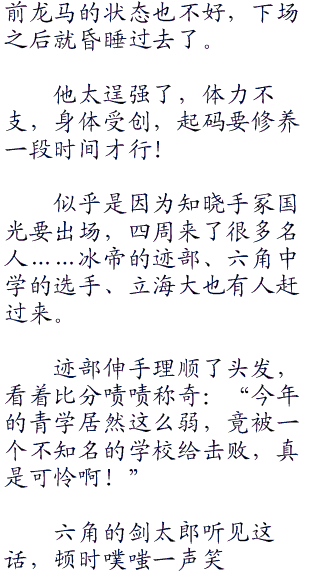 前龙马的状态也不好，下场
之后就昏睡过去了。
他太逞强了，体力不
支，身体受创，起码要修养
一段时间才行！
似乎是因为知晓手冢国
光要出场，四周来了很多名
人……冰帝的迹部、六角中
学的选手、立海大也有人赶
过来。
迹部伸手理顺了头发，
看着比分啧啧称奇：“今年
的青学居然这么弱，竟被一
个不知名的学校给击败，真
是可怜啊！”
六角的剑太郎听见这
话，顿时噗嗤一声笑